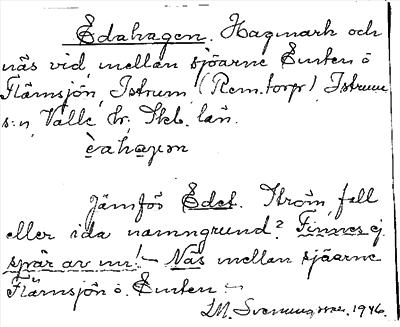 Edahagen. Hagmark och
näs vid, mellan sjöarne Emten o
Flämsjön, Istrum (Rem.torp) Istrum
s:n, Valle hr, Skb. län.
èahagen
Jämför Edet. Ström, fall
eller ida namngrund? Finnes ej
spår av nu! - Näs mellan sjöarne
Flämsjön o. Emten -
1946.